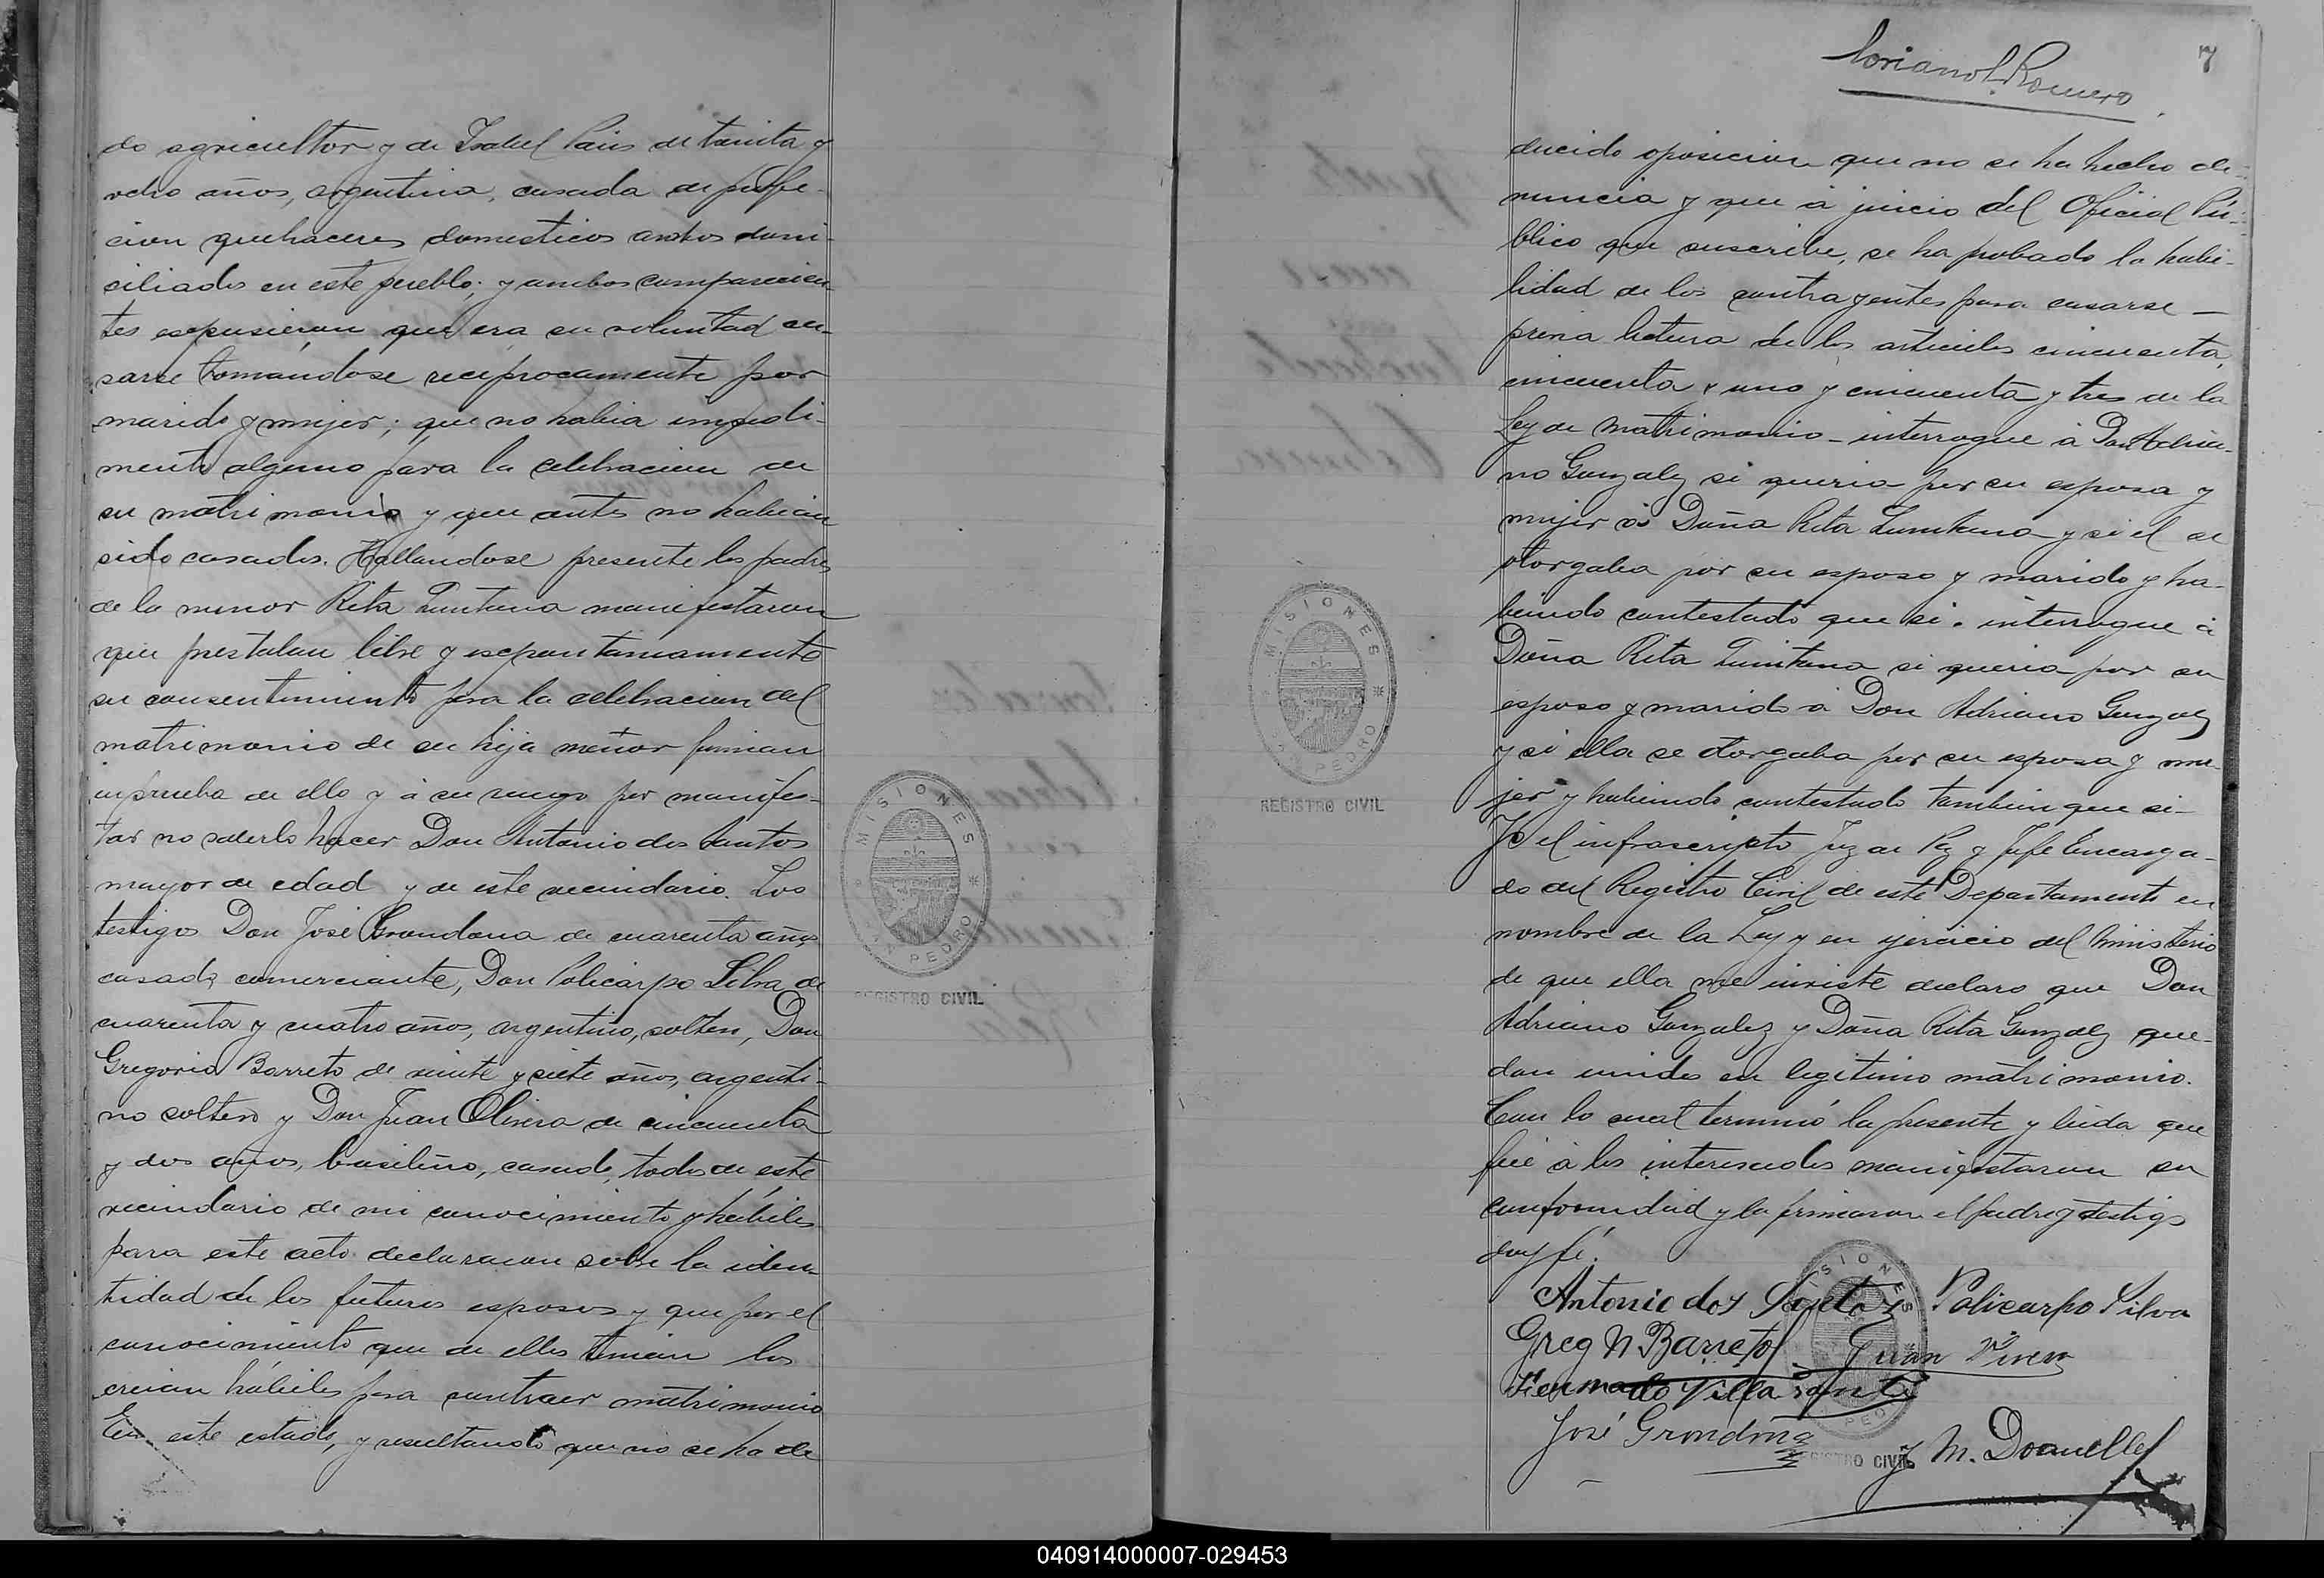 do agricultor y de Isabel Paiis de treinta y
ocho años, argentina, casada de profe-
cion quehaceres domesticos ambos domi-
ciliados en este pueblo; y ambos comparecien-
tes espusieron que era su voluntad ca-
sarse tomándose reciprocamente por
marido y mujer; que no habia impedi-
mento alguno para la celebracion de
su matrimonio y que antes no habian
sido casados. Hallandose presente los padres
de la menor Rita Quintana manifestaron
que prestaban libre y espontaniamente
su consentimiento para la celebracion del
matrimonio de su hija menor firman
en prueba de ello y à su ruego por manifes-
tar no saberlo hacer Don Antonio dos Santos
mayor de edad y de este vecindario. Los
testigos Don José Grondona de cuarenta años
casado comerciante, Don Policarpo Silva de
cuarenta y cuatro años, argentino, soltero, Don
Gregorio Barreto de veinte y siete años, argenti-
no soltero y Don Juan Olivera de cincuenta
y dos años, brasilero, casado, todos de este
vecindario de mi conocimiento y hábiles
para este acto declararon sobre la iden-
tidad de los futuros esposos y que por el
conocimiento que de ellos tenian los
creian hábiles para contraer matrimonio
En este estado, y resultando que no se ha de
MISIONES
SAN PEDRO
REGISTRO CIVIL
7
Romero
ducido oposicion que no se ha hecho de-
nuncia y que à juicio del Oficial Pú-
blico que suscribe, se ha probado la habi-
lidad de los contrayentes para casarse —
previa lectura de los articulos cincuenta,
cincuenta y uno y cincuenta y tres de la
Ley de Matrimonio - interrogue à Don Adria-
no Gonzalez si queria por su esposa y
mujer à Doña Rita Quintana y si el se
otorgaba por su esposo y marido y ha-
biendo contestado que si. interrogue à
Doña Rita Quintana si queria por su
esposo y marido à Don Adriano Gonzalez
y si ella se otorgaba por su esposa y mu-
jer y habiendo contestado tambien que si -
Yo el infrascripto Juez de Paz y Jefe Encarga-
do del Registro Civil de este Departamento en
nombre de la Ley y en ejercicio del Ministerio
de que ella me inviste declaro que Don
Adriano Gonzalez y Doña Rita Gonzalez que-
dan unidos en legitimo matrimonio.
Con lo cual terminó la presente y leida que
fué à los interesados manifestaron su
conformidad y la firmaron el padre y testigos
doy fé.
Antonio dos Santos Policarpo Silva
Greg N Barreto Juan
Villasanti
José Grondona
J M. Doanelle
MISIONES
SAN PEDRO
REGISTRO CIVIL
MISIONES
REGISTRO CIVIL
040914000007-029453